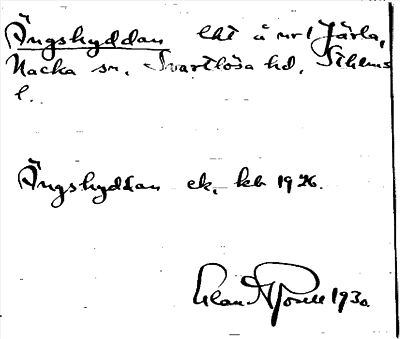 Ängshyddan lht å nr 1 Järla,
Nacka sn. Svartlösa hd, Sthlms
l.
Ängshyddan ek. kb 1926.
1930